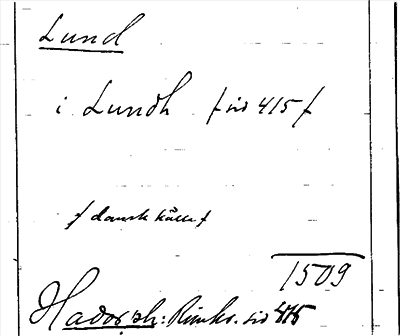 Lund
i Lundh /sid 415/
/dansk källa/
1509
Hadorph: Rimkr. sid 415